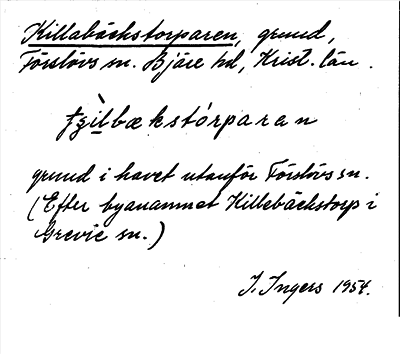 Killabäckstorparen, grund,
Förslövs sn. Bjäre hd, Krist. län.
grund i havet utanför Förslövs sn.
(Efter byanamnet Killebäckstorp i
Grevie sn.)
I. Ingers 1954.